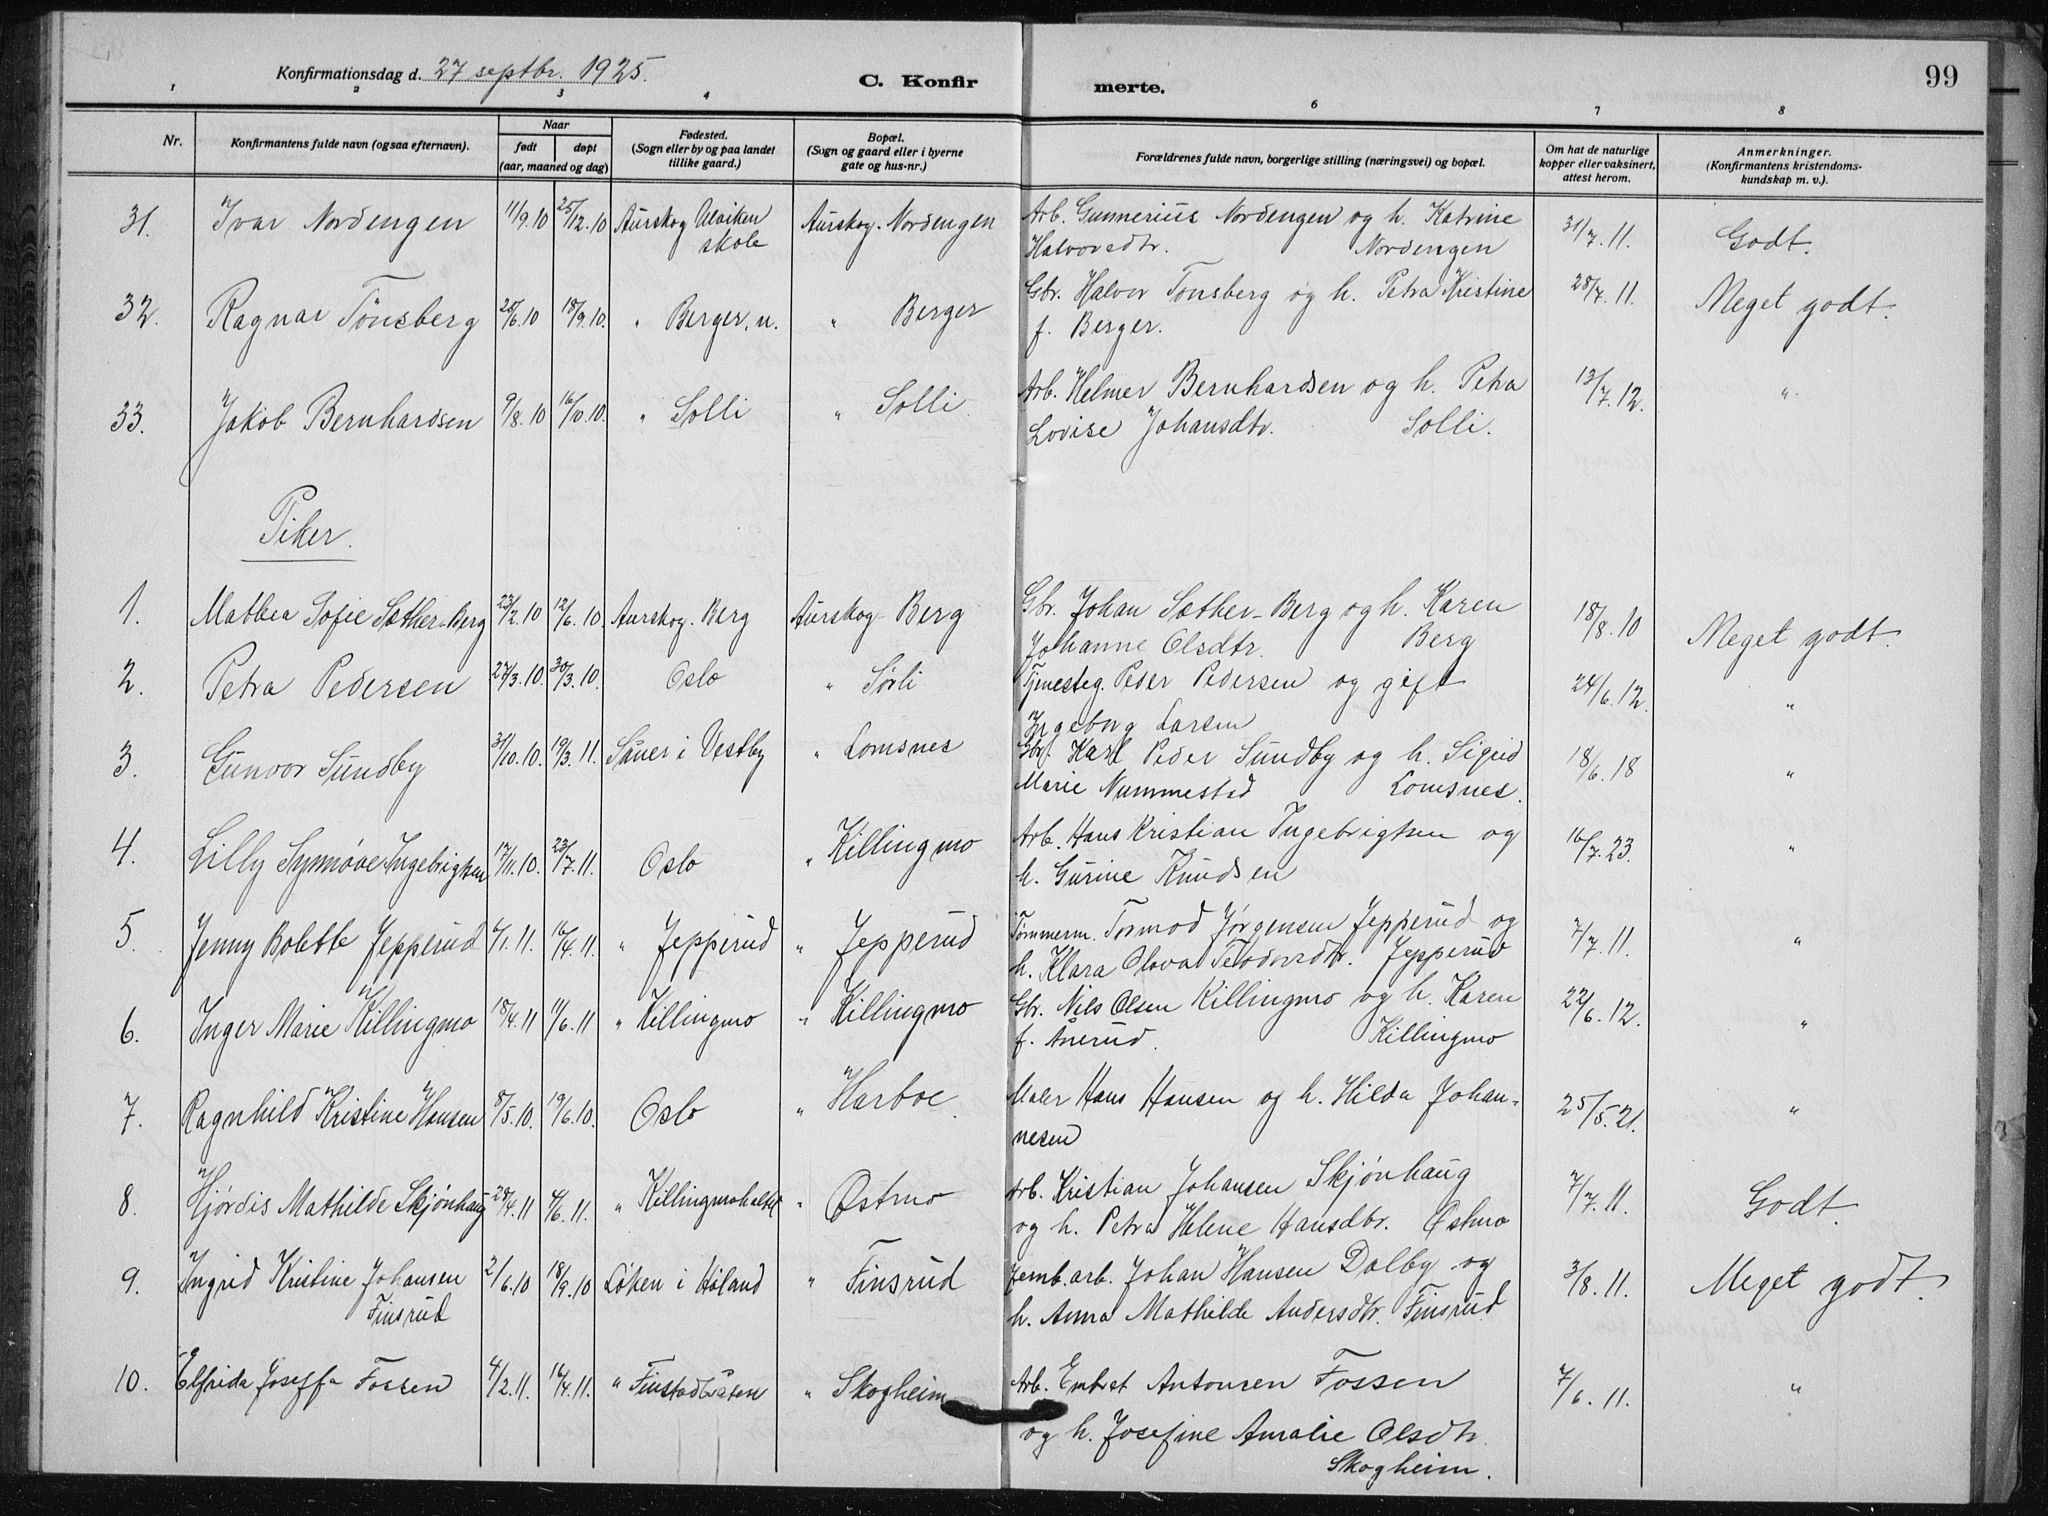 99
Konfirmationsdag d. 27 septbr. 1925.
C. Konfirmerte.
1 2 3 4 6 7 8
Nr.
Konfirmantens fulde navn (ogsaa efternavn).
Naar
født døpt
(aar, maaned og dag)
Fødested.
(Sogn eller by og paa landet
tillike gaard.)
Bopæl.
(Sogn og gaard eller i byerne
gate og hus-nr.)
Forældrenes fulde navn, borgerlige stilling (næringsvei) og bopæl.
Om hat de naturlige
kopper eller vaksinert,
attest herom.
Anmerkninger.
(Konfirmantens kristendoms-
kundskap m. v.).
31. Ivar Nordengen 11/9.10 25/12.10 Aurskog Ulviken Aurskog. Nordengen Arb. Gunnerius Nordengen og h. Katrine 31/7.11. Godt.
skole Halvorsdtr. Nordengen
32. Ragnar Tönsberg 25/6.10 18/9.10. " Berger, n. " Berger Gbr. Halvor Tonsberg og h. Petra Kristine 28/7.11. Meget godt.
f. Berger.
33. Jakob Bernhardsen 9/8.10 16/10.10. " Solli " Solli Arb. Helmer Bernhardsen og h. Petra 13/7.12. "
Lovise Johansdtr. Solli.
Piker.
1. Mathea Sofie Sæther-Berg 23/2.10 12/6.10. Aurskog. Berg Aurskog- Berg Gbr. Johan Sæther-Berg og h. Karen 18/8.10 Meget godt.
Johanne Olsdtr. Berg
2. Petra Pedersen 27/3.10. 30/3.10. Oslo " Sørli Tjenesteg. Peder Pedersen og gift 24/6.12. "
Ingeborg Larsen
3. Gunvor Sundby 31/10.10. 19/3.11. Sauer i Vestby " Lomsnes Gbr. Karl Peder Sundby og h. Sigrid 18/6.18 "
Marie Nummestad Lomsnes.
4. Lilly Synnøve Ingebrigtsen 17/11.10. 23/7.11. Oslo " Killingmo Arb. Hans Kristian Ingebrigtsen og 16/7.23. "
h. Gurine Knudsen
5. Jenny Bolette Jepperud 6/1.11. 16/4.11. " Jepperud " Jepperud Tømmerm. Tormod Jørgensen Jepperud og 7/7.11. "
h. Klara Olova Teodorsdtr. Jepperud
6. Inger Marie Killingmo 18/4.11 11/6.11 " Killingmo " Killingmo Gbr. Nils Olsen Killingmo og h. Karen 22/6.12. "
f. Ånerud. Killingmo
7. Ragnhild Kristine Hansen 8/5.10. 19/6.10. Oslo " Harboe. Maler Hans Hansen og h. Hilda Johan- 25/5.21. "
nesen
8. Hjørdis Mathilde Skjønhaug 28/4.11 4/6.11. " " Østmo Arb. Kristian Johansen Skjønhaug 7/7.11. Godt.
og h. Petra Helene Hansdtr. Østmo
9. Ingrid Kristine Johansen 2/6.10 18/9.10 Løken i Høland " Finsrud Jernb.arb. Johan Hansen Dalby og 3/8.11. Meget godt.
Finsrud h. Anna Mathilde Andersdtr. Finsrud
10. Elfrida Joseffa Fossen 4/2.11. 16/4.11. " Finstadbråten " Skogheim Arb. Embret Antonsen Fossen 7/6.11. "
og h. Josefine Amalie Olsdtr.
Skogheim.